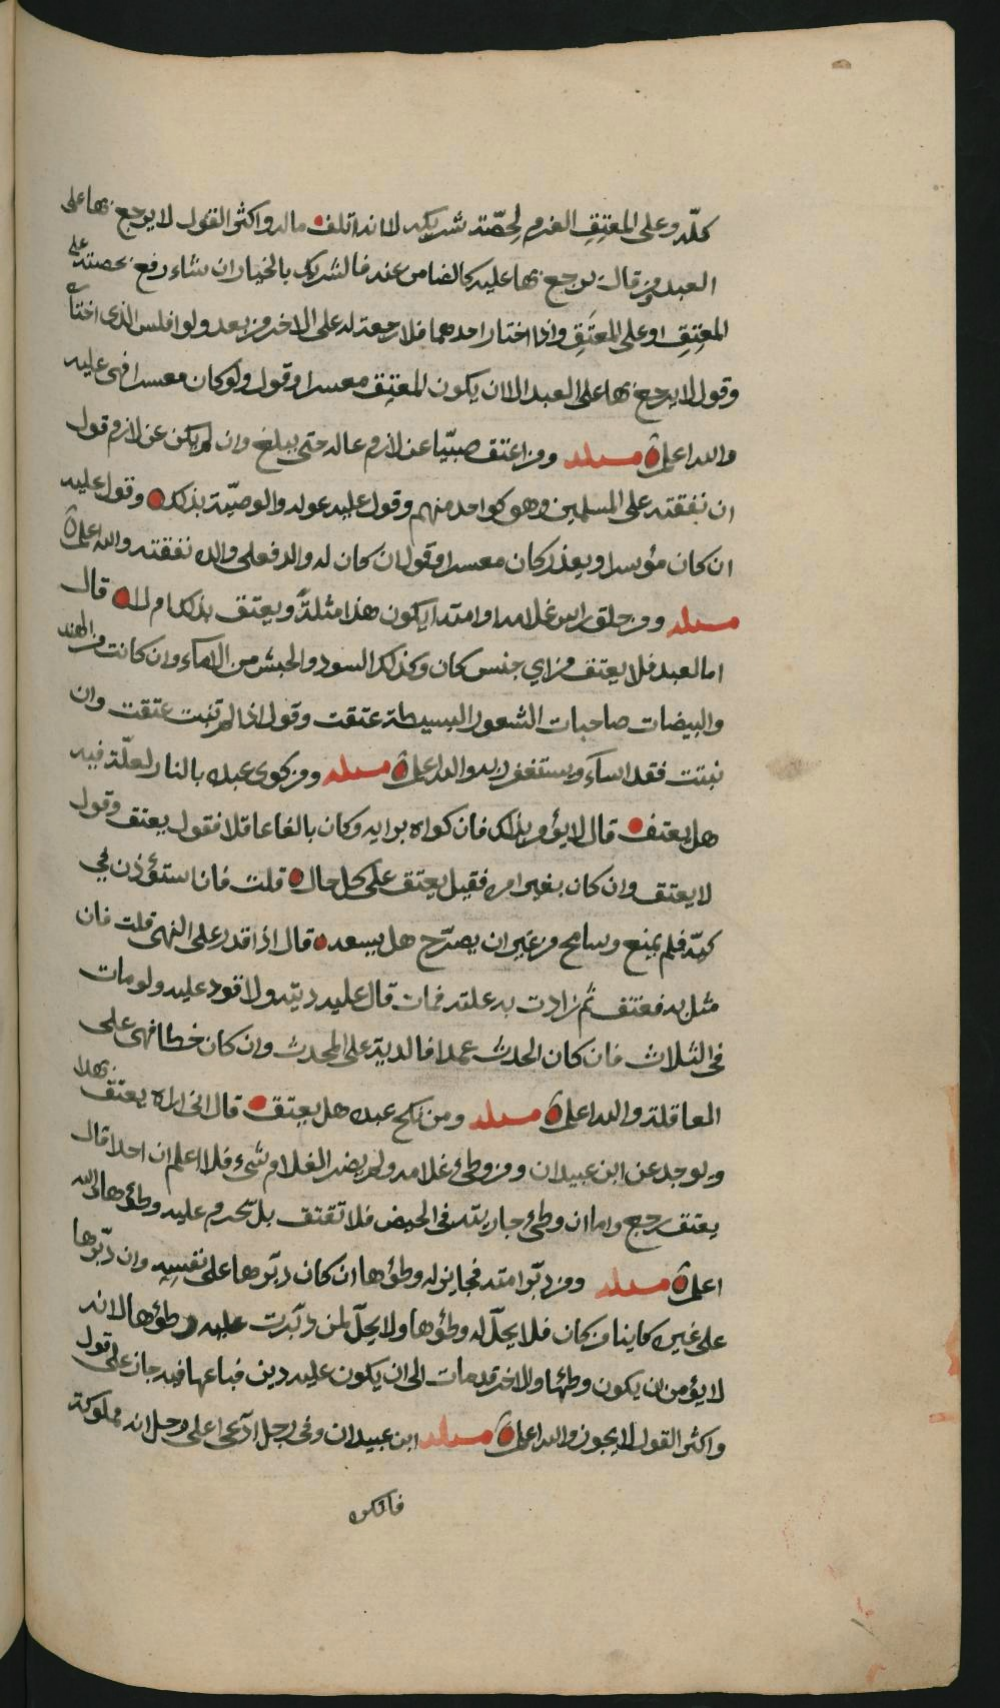 كلّه وعلى المعتِقِ الغرم لِحصّته شريكه لانه اتلف ماله واكثر القول لا يرجع بها على
العبد ومن قال يرجع بها عليه كالضامن عنه فالشريك بالخيار ان شاء رفع بحصته على
المعتِقِ او على المعتَقِ واذا اختار احدهما فلا رجعة له على الاخر من بعد ولو افلس الذى اختاره
وقول لا يرجع بها على العبد الا ان يكون المعتِق معسرا وقول ولو كان معسرا فهى عليه
والله اعلم مسئلة ومن اعتق صبيّا عن لازم عاله حتى يبلغ وان لم يكن عن لازم قول
ان نفقته على المسلمين وهو كواحد منهم وقول عليه عوله والوصيّة بذلك وقول عليه
ان كان مؤسرا ويعذر كان معسرا وقول ان كان له والد فعلى والده نفقته والله اعلم
مسئلة ومن حلق راس غلامه او امته ايكون هذا مثلةً ويعتق بذلك ام لا قال
اما العبد فلا يعتق من اي جنس كان وكذلك السود والحبش من الاماء وان كانت من الهند
والبيضات صاحبات الشعور البسيطة عتقت وقول اذا لم تنبت عتقت وان
نبتت فقد اساء ويستغفر ربه والله اعلم مسئلة ومن كوى عبده بالنار لعلّة فيه
هل يعتق قال لا يؤمر بذلك فان كواه برايه وكان بالغا عاقلا فقول يعتق وقول
لا يعتق وان كان بغير امره فقيل يعتق على كل حال قلت فان استؤذن في
كيّه فلم يمنع وسامح من غير ان يصرّح هل يسعه قال اذا قدر على النهى قلت فان
مثل به فعتق ثم زادت به علته فمات قال عليه ديته ولا قود عليه ولو مات
فى الثلاث فان كان الحدث عمدا فالدية على المحدث وان كان خطا فهى على
العاقلة والله اعلم مسئلة ومن نكح عبده هل يعتق قال انى اراه يعتق بهذا
ويوجد عن ابن عبيدان ومن وطئ غلامه ولم يضر الغلام شىء فلا اعلم ان احدا قال
يعتق رجع واما ان وطئ جاريته فى الحيض فلا تعتق بل تحرم عليه وطؤها والله
اعلم مسئلة ومن دبّر امته فجايز له وطؤها ان كان دبّرها على نفسِهِ وان دبّرها
على غيره كاينا من كان فلا يحلّ له وطؤها ولا يحلّ لمن دبّرت عليه وطؤها لانه
لا يؤمن ان يكون وطئها والاخر قد مات الى ان يكون عليه دين فباعها فيه جاز على قول
واكثر القول لا يجوز والله اعلم مسئلة ابن عبيدان وفى رجل ادّعى على رجل انه مملوكه
فانكره